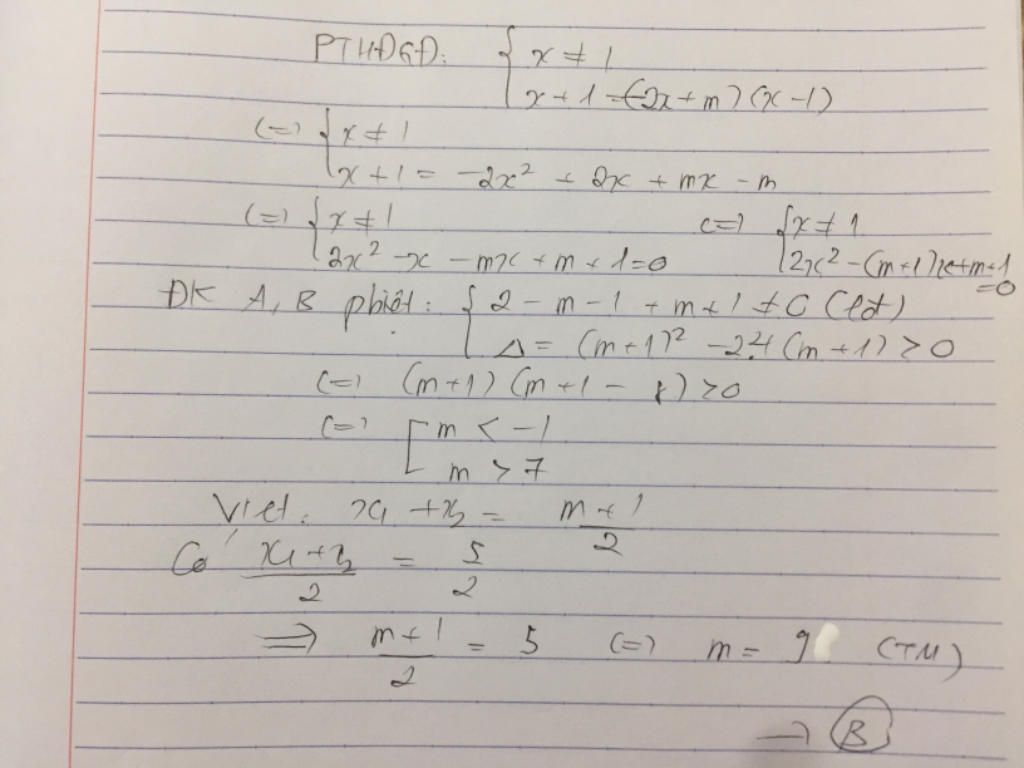 PTHĐGĐ: { x ≠ 1
x + 1 = (-2x + m)(x - 1)
(=) { x ≠ 1
x + 1 = -2x² + 2x + mx - m
(=) { x ≠ 1 (=) { x ≠ 1
2x² - x - mx + m + 1 = 0 2x² - (m+1)x + m+1 = 0
ĐK A, B pbiệt: { 2 - m - 1 + m + 1 ≠ 0 (lđt)
Δ = (m+1)² - 2.4(m+1) > 0
(=) (m+1)(m+1 - 8) > 0
(=) [ m < -1
m > 7
Viet: x₁ + x₂ = (m+1)/2
Có (x₁ + x₂)/2 = 5/2
=> (m+1)/2 = 5 (=) m = 9 (TM)
→ B